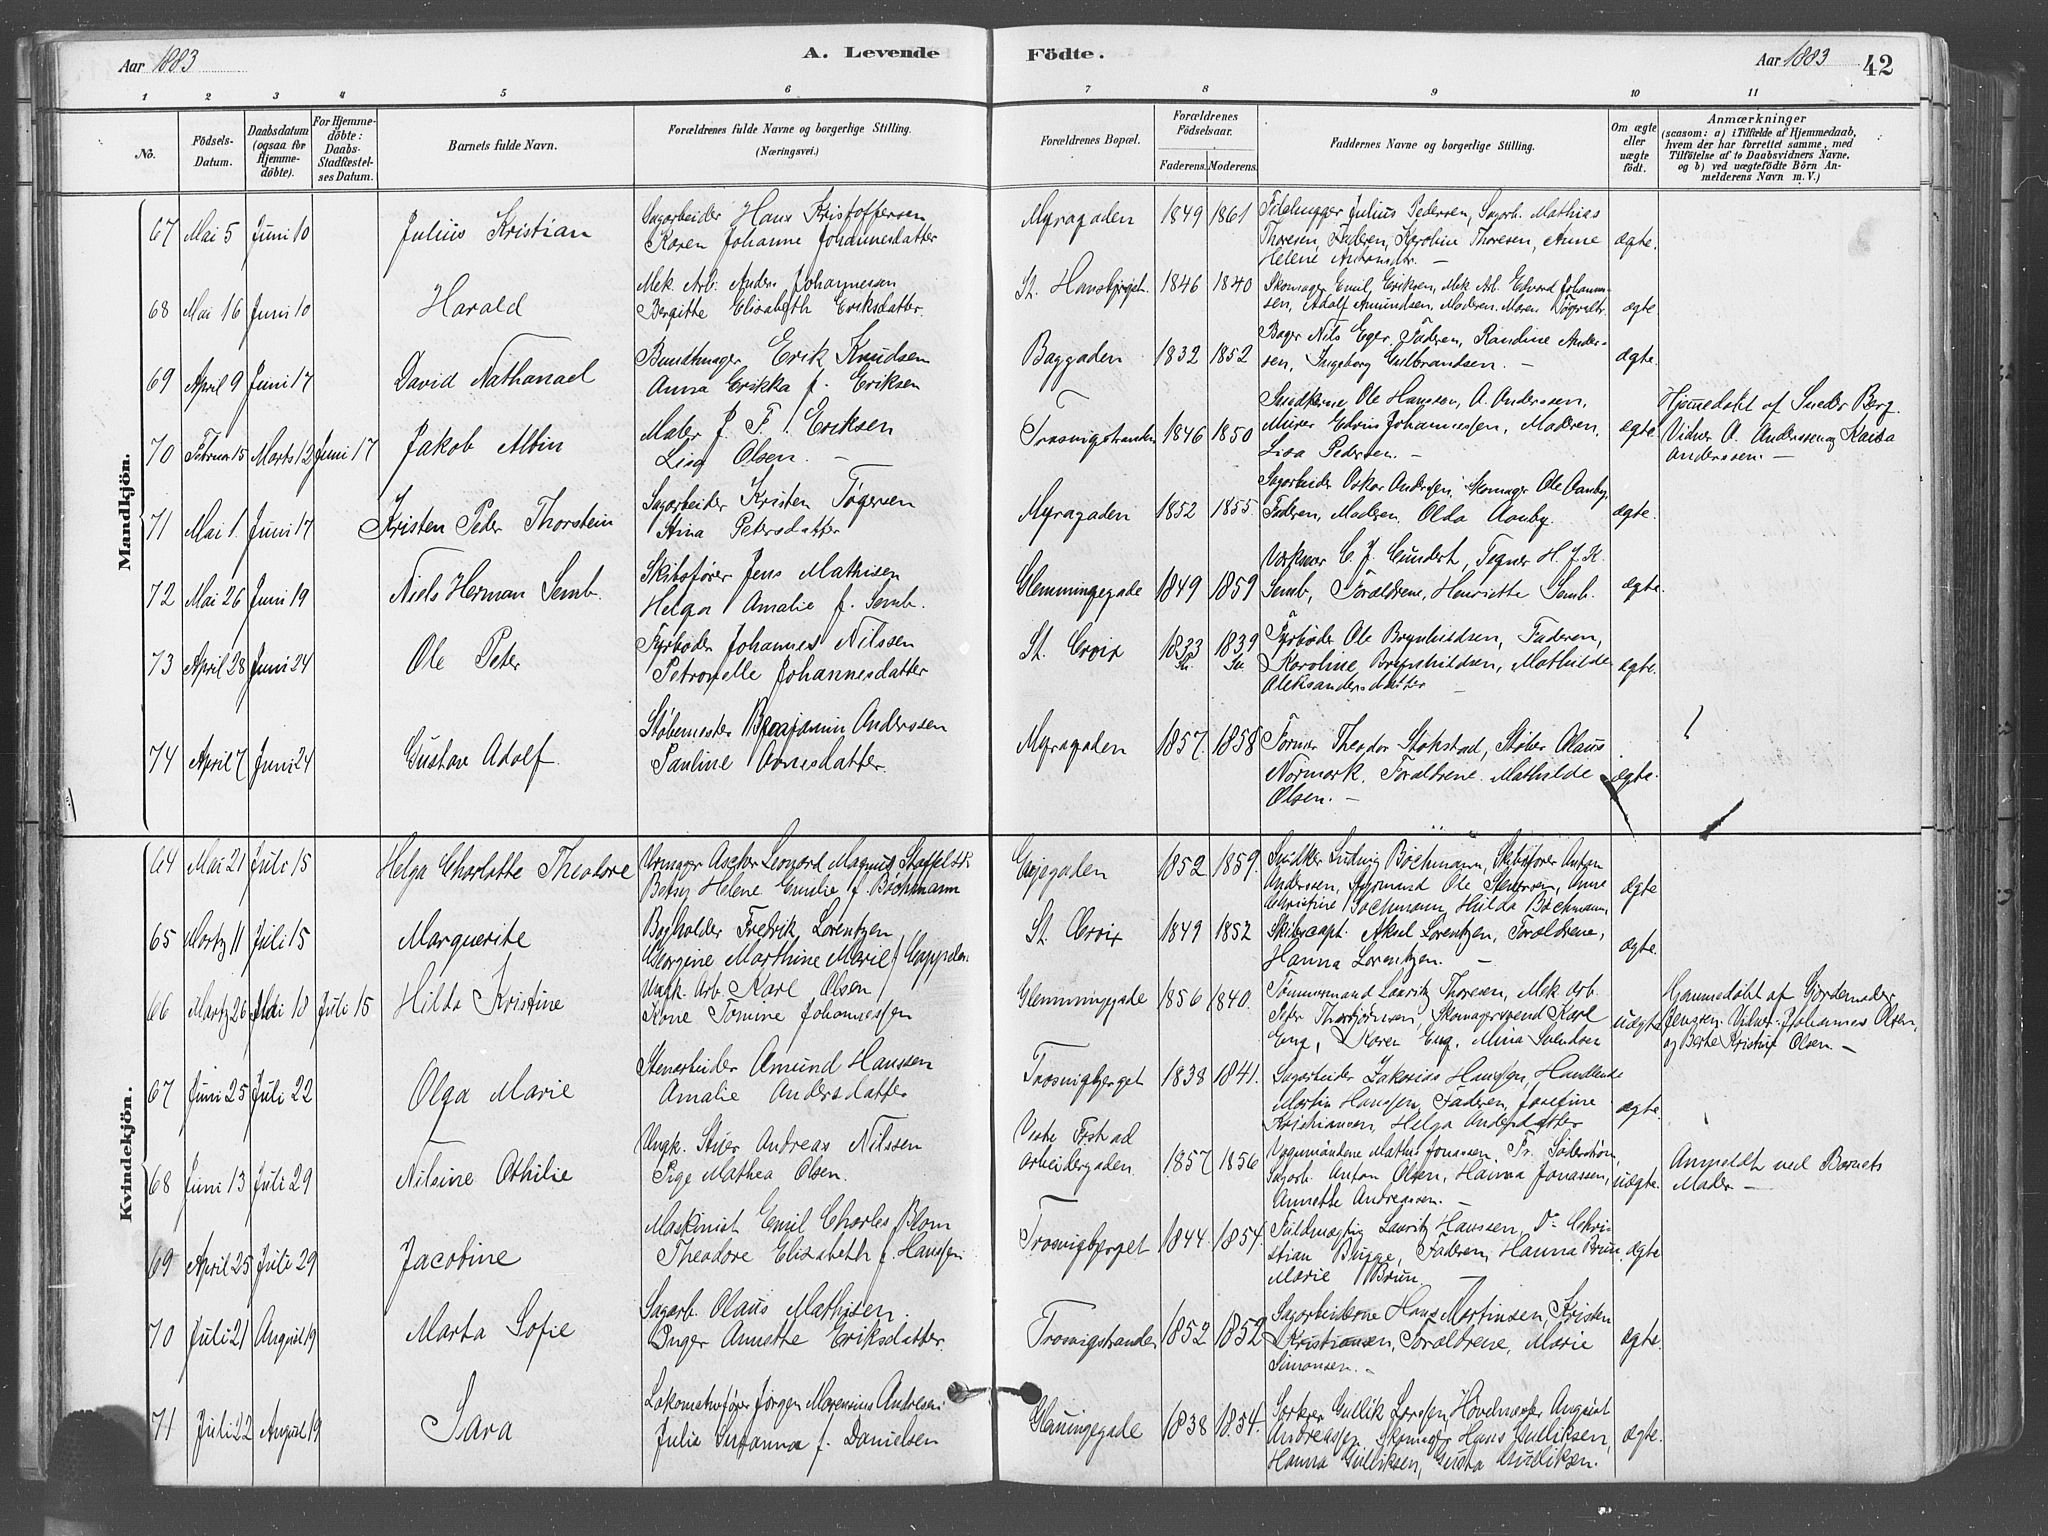 Aar 1883
A. Levende
Födte.
Aar 1883
42
1 2 3 4 5 6 7 8 9 10 11
No.
Födsels-
Datum.
Daabsdatum
(ogsaa for
Hjemme-
döbte).
For Hjemme-
döbte:
Daabs-
Stadfæstel-
ses Datum.
Barnets fulde Navn.
Forældrenes fulde Navne og borgerlige Stilling.
(Næringsvei.)
Forældrenes Bopæl.
Forældrenes
Födselsaar.
Faderens. Moderens.
Faddernes Navne og borgerlige Stilling.
Om ægte
eller
uægte
födt.
Anmærkninger
(saasom: a) i Tilfælde af Hjemmedaab,
hvem der har forrettet samme, med
Tilföielse af to Daabsvidners Navne,
og b) ved uægtefödte Börn An-
melderens Navn m. V.)
Mandkjön.
67 Mai 5 Juni 10
Julius Kristian
Sagarbeider Hans Kristoffersen
Karen Johanne Johannesdatter
Myragaden 1849 1861
Filehugger Julius Pedersen, Sagarb. Mathias
Thoresen, Faderen, Karoline Thoresen, Anne
Helene Antonsdtr. —
ægte.
68 Mai 16 Juni 10
Harald
Mek. Arb. Anders Johannesen
Bergitte Elisabeth Eriksdatter
St. Hansbjerget 1846 1840
Skomager Emil Eriksen, Mek Arb. Edvard Johann-
sen, Adolf Amundsen, Maderen, Maren
ægte
69 April 9 Juni 17
David Nathanael
Bundtmager Erik Knudsen
Anna Erikka f. Eriksen
Baggaden 1832 1852
Bager Nils Eger, Faderen, Randine Ander-
sen, Ingeborg Gulbrandsen. —
ægte.
70 Februar 15 Marts 12 Juni 17
Jakob Albin
Maler J. F. Eriksen
Lisa Olsen. —
Trosvigstranden 1846 1850
Snedkerne Ole Hanssen, A. Anderssen,
Murer Edvin Johannessen, Maderen,
Lisa Pedersen. —
ægte.
Hjemmedøbt af Snedker Berg.
Vidner A. Anderssen og Kaisa
Anderssen. —
71 Mai 1. Juni 17
Kristen Peder Thorstein
Sagarbeider Kristen Tøgersen
Stina Petersdatter
Myragaden 1852 1855
Sagarbeider Oskar Andersen, Skomager Ole Aanby
Faderen, Maderen, Olda Aanby.
ægte.
72 Mai 26 Juni 19
Niels Herman Semb.
Skibsfører Jens Mathisen
Helga Amalie f. Semb.
Glemmingegade 1849 1859
C. J. Gundert, Tegner H. J. K.
Semb, Forældrene, Henriette Semb.
ægte.
73 April 28 Juni 24
Ole Peter
Fyrbøder Johannes Nilssen
Petronelle Johannesdatter
St. Croix 1833 1839
Fyrbøder Ole Brynhildsen, Faderen,
Karoline Brynhildsen, Mathilde
Aleksandersdatter —
ægte.
74 April 7 Juni 24
Gustav Adolf
Støbemester Benjamin Anderssen
Pauline Arnesdatter
Myragaden 1857 1858
Former Theodor Stokstad, Støber Olaus
Normark, Forældrene, Mathilde
Olsen. —
ægte.
Kvindekjön.
64 Mai 21 Juli 15
Helga Charlotte Theodore
Urmager Leonard Magnus
Betsy Helene Emilie f. Bøchmann
Geijegaden 1852 1859.
Snidker Ludvig Bøchmann, Skibsfører Anton
Anderssen, Styrmand Ole Anne
Christine Bøchmann, Hilda Bøchmann,
ægte
65 Marts 11 Juli 15
Marguerite
Bogholder Fredrik Lorentzen
Georgine Marthine Marie f. Cappelen
St. Croix 1849 1852
Skibscapt. Aksel Lorentzen, Forældrene,
Hanna Lorentzen. —
ægte.
66 Marts 26 Mai 10 Juli 15
Hilda Kristine
Ungk. Arb. Karl Olsen
Kone Tomine Johannessen
Glemminggade 1856 1840.
Tømmermand Lauritz Thoresen, Mek. Arb.
Peter Thorbjørnsen, Skomagersvend Karl
Eng, Karen Eng, Mina Svendsen
uægte
Hjemmedøbt af Gjordemoder
Jensen. Vidner Johannes Olsen,
og Berte Kristine Olsen. —
67 Juni 25 Juli 22
Olga Marie
Stenarbeider Amund Hanssen
Amalie Andersdatter
Trosvigbjerget 1838 1841.
Sagarbeider Zakarias Hanssen, Handlende
Martin Hanssen, Faderen, Josefine
Kristiansen, Helga Andersdatter
ægte.
68 Juni 13 Juli 29
Nilsine Othilie
Ungk. Stuer Andreas Nilssen
Pige Mathea Olsen.
Vestre Frstad
Arbeidergaden 1857 1856
Vognmændene Mathis Jonassen, Fr. Søderstrøm,
Sagarb. Anton Olsen, Hanna Jonassen,
Annette Andreassen. —
uægte.
Anmeldt ved Barnets
Mader —
69 April 25 Juli 29
Jacobine
Maskinist Emil Charles Blom
Theodore Elisabeth f. Hanssen
Trosvigbjerget 1844 1854.
Fuldmægtig Lauritz Hanssen, Do Chri-
stian Bugge, Faderen, Hanna Brun,
Marie Brun. —
ægte
70 Juli 21 August 19
Marta Sofie
Sagarb. Olaus Mathisen.
Inger Annette Eriksdatter.
Trosvigstranden 1852 1852
Sagarbeiderne Hans Martinsen, Kristen
Kristiansen, Forældrene, Marie
Simonsen. —
ægte.
71 Juli 22 August 19
Sara
Lokomotivfører Jørgen Marensius Andresen
Julie Susanna f. Danielsen
Glemmingegade 1838 1854.
Gullik Larssen, August
Andreassen, Skomager Hans Gulliksen,
Hanna Gulliksen, Gusta Gulliksen.
ægte.